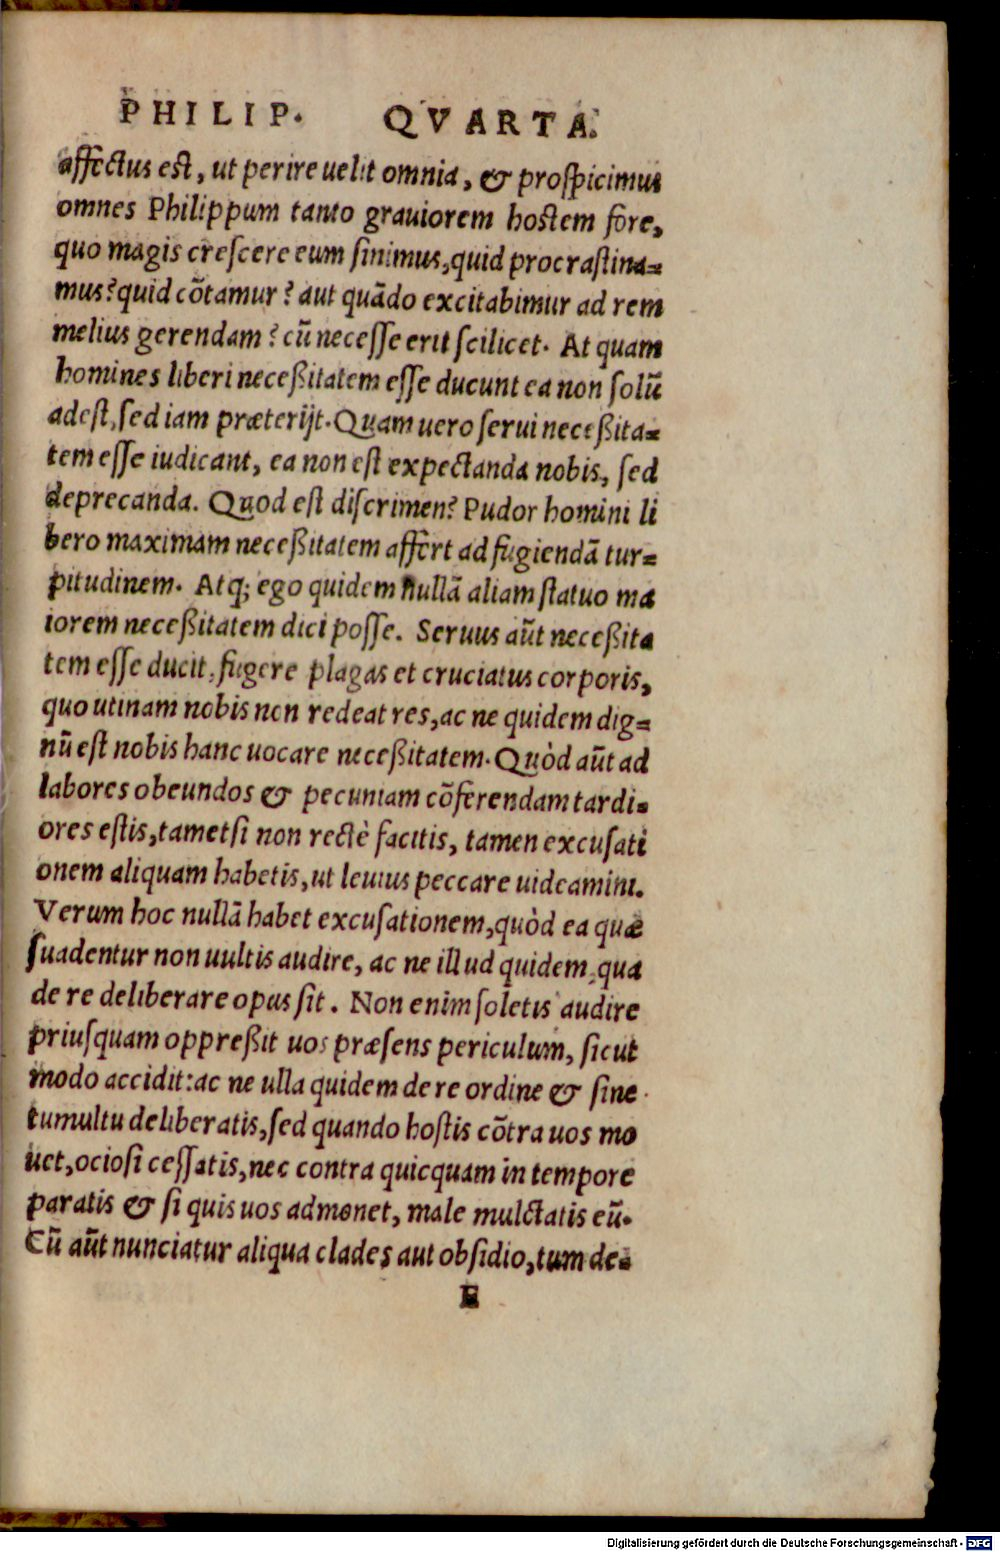 PHILIP. QVARTA.
affectus est, ut perire uelit omnia, & prospicimus
omnes Philippum tanto grauiorem hostem fore,
quo magis crescere eum sinimus, quid procrastina=
mus? quid cõtamur? aut quãdo excitabimur ad rem
melius gerendam? cũ necesse erit scilicet. At quam
homines liberi neceßitatem esse ducunt ea non solũ
adest, sed iam præterijt. Quam uero serui neceßita=
tem esse iudicant, ea non est expectanda nobis, sed
deprecanda. Quod est discrimen? Pudor homini li
bero maximam neceßitatem affert ad fugiendã tur=
pitudinem. Atq; ego quidem nullã aliam statuo ma
iorem neceßitatem dici posse. Seruus aũt neceßita
tem esse ducit, fugere plagas et cruciatus corporis,
quo utinam nobis non redeat res, ac ne quidem dig=
nũ est nobis hanc uocare neceßitatem. Quòd aũt ad
labores obeundos & pecuniam cõferendam tardi=
ores estis, tametsi non rectè facitis, tamen excusati
onem aliquam habetis, ut leuius peccare uideamini.
Verum hoc nullã habet excusationem, quòd ea quæ
suadentur non uultis audire, ac ne illud quidem, qua
de re deliberare opus sit. Non enim soletis audire
priusquam oppreßit uos præsens periculum, sicut
modo accidit: ac ne ulla quidem de re ordine & sine
tumultu deliberatis, sed quando hostis cõtra uos mo
uet, ociosi cessatis, nec contra quicquam in tempore
paratis & si quis uos admonet, male mulctatis eũ.
Cũ aũt nunciatur aliqua clades aut obsidio, tum de=
E
Digitalisierung gefördert durch die Deutsche Forschungsgemeinschaft - DFG